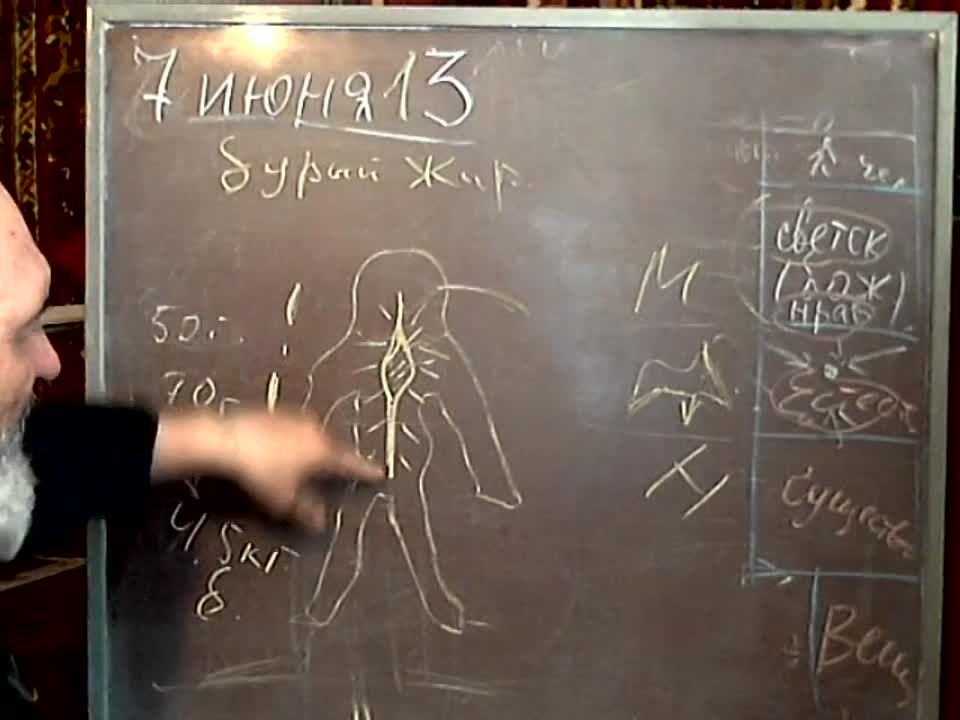 7 июня 13
бурый жир.
50г. !
70г !
4.5кг.
б.
М
Х
чел
светск
(лож
нрав).
Существо
Вещ